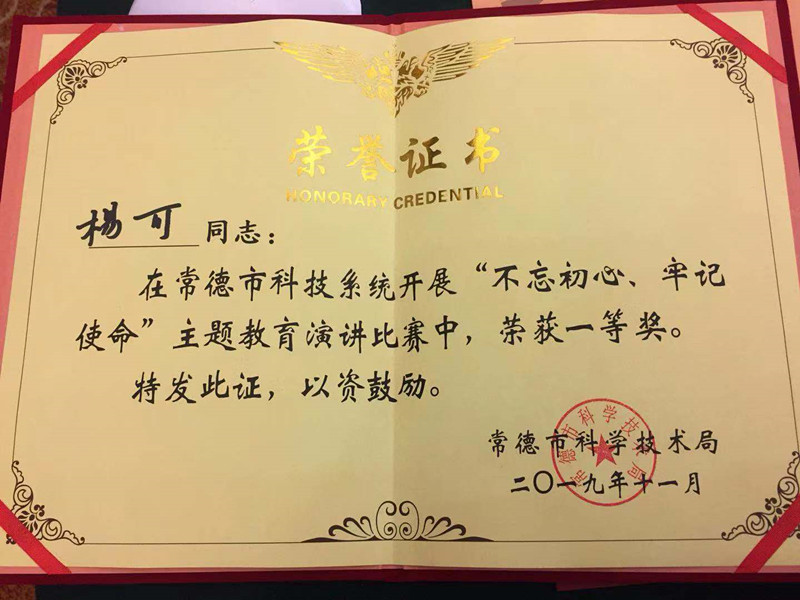 荣誉证书
HONORARY CREDENTIAL
杨可 同志：
在常德市科技系统开展“不忘初心、牢记
使命”主题教育演讲比赛中，荣获一等奖。
特发此证，以资鼓励。
常德市科学技术局
二〇一九年十一月
常德市科学技术局